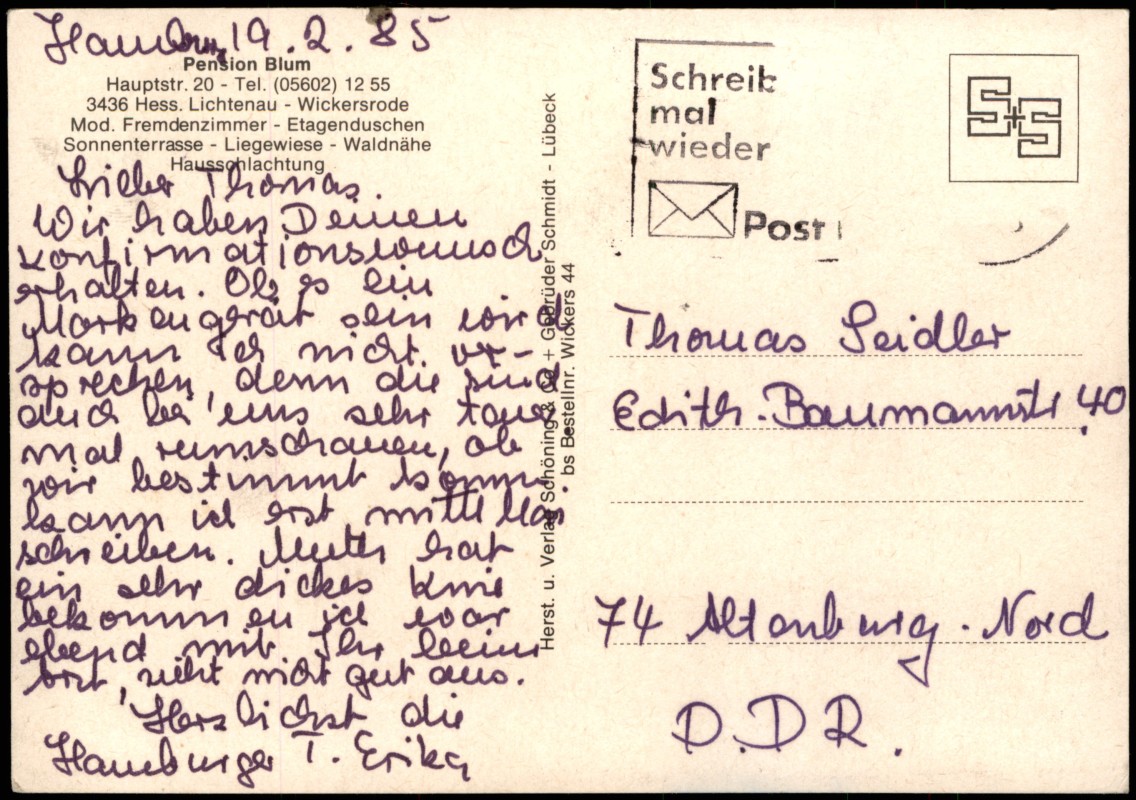 Hamburg 19.2.85
Pension Blum
Hauptstr. 20 - Tel. (05602) 12 55
3436 Hess. Lichtenau - Wickersrode
Mod. Fremdenzimmer - Etagenduschen
Sonnenterrasse - Liegewiese - Waldnähe
Hausschlachtung
Lieber Thomas.
Wir haben Deinen
Konfirmationswunsch
erhalten. Ob es ein
Markengerät sein wird
kann ich nicht ver-
sprechen, denn die sind
auch bei uns sehr teuer,
mal rumschauen, ob
wir bestimmt komm.
kann ich erst mitte
schreiben. Mutti hat
ein sehr dickes Knie
bekommen ich war
ebend mit Ihr beim
Arzt, sieht nicht gut aus.
Herzlichst die
Hamburger T. Erika
Herst. u. Verlag Schöning & Co + Gebrüder Schmidt - Lübeck
bs Bestellnr. Wickers 44
Schreib
mal
wieder
Post
S+S
Thomas Seidler
Edith-Baumannstr 40
74 Altenburg-Nord
D.D.R.